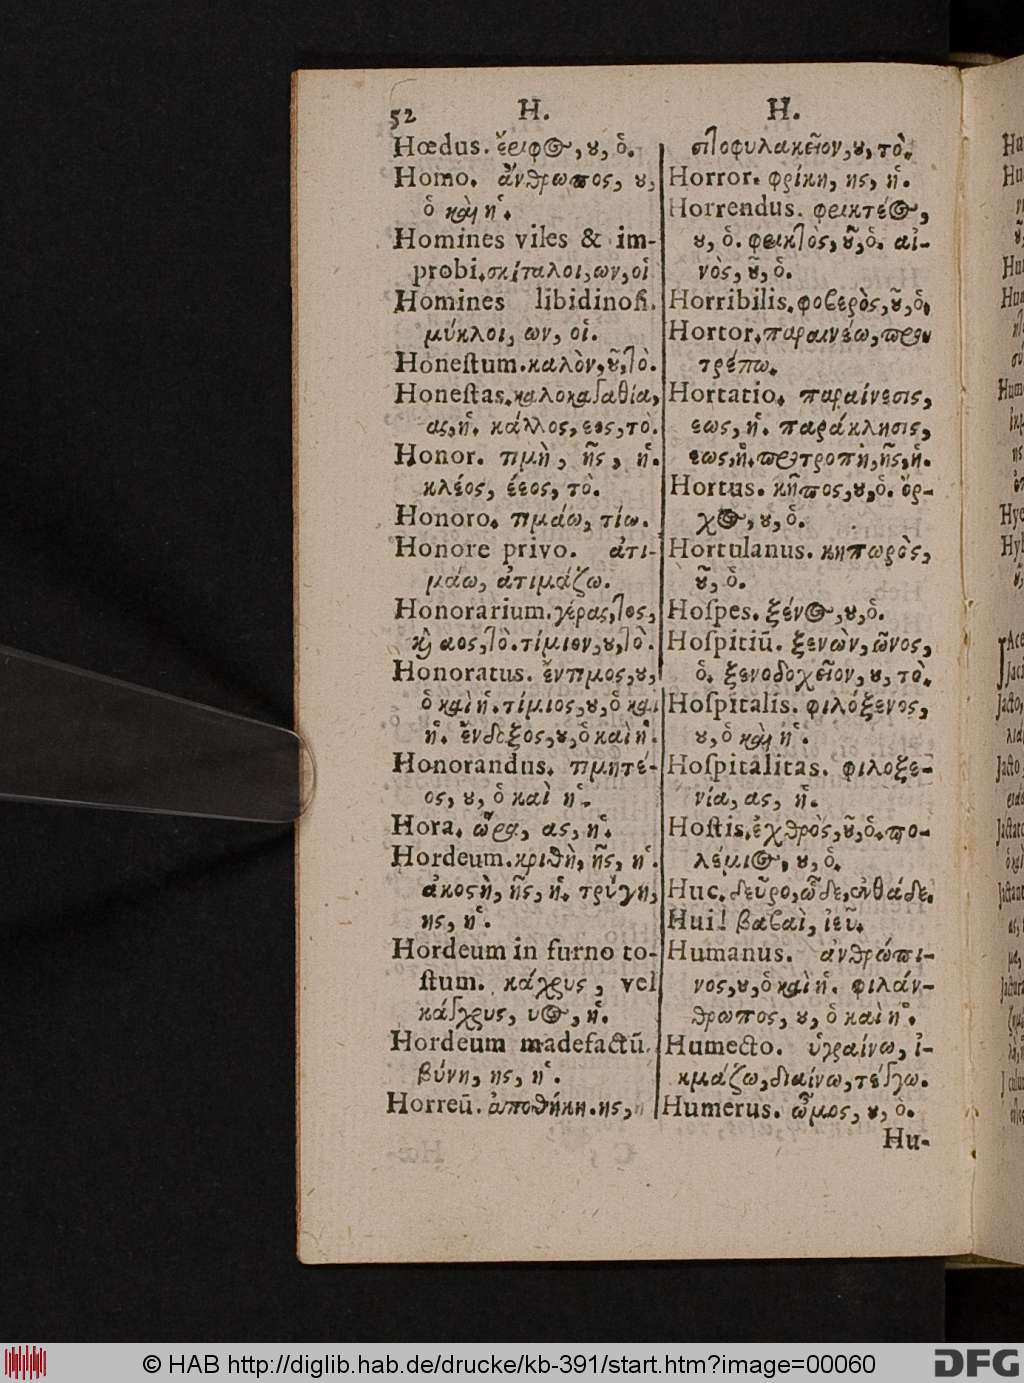 52 H. H.
Hœdus. ἔριφος, ου, ὁ.
Homo. ἄνθρωπος, ου,
ὁ καὶ ἡ.
Homines viles & im-
probi. σκίταλοι, ων, οἱ
Homines libidinoſi.
μύκλοι, ων, οἱ.
Honeſtum. καλὸν, οῦ, τὸ.
Honeſtas. καλοκαγαθία,
ας, ἡ. κάλλος, εος, τὸ.
Honor. τιμὴ, ῆς, ἡ.
κλέος, έεος, τὸ.
Honoro. τιμάω, τίω.
Honore privo. ἀτι-
μάω, ἀτιμάζω.
Honorarium. γέρας, τος,
καὶ αος, τὸ. τίμιον, ου, τὸ.
Honoratus. ἔντιμος, ου,
ὁ καὶ ἡ. τίμιος, ου, ὁ καὶ
ἡ. ἔνδοξος, ου, ὁ καὶ ἡ.
Honorandus. τιμητέ-
ος, ου, ὁ καὶ ἡ.
Hora. ὥρα, ας, ἡ.
Hordeum. κριθὴ, ῆς, ἡ.
ἀκοστὴ, ῆς, ἡ. τρύγη,
ης, ἡ.
Hordeum in furno to-
ſtum. κάχρυς, vel
κάγχρυς, υος, ἡ.
Hordeum madefactū.
βύνη, ης, ἡ.
Horreū. ἀποθήκη. ης, ἡ
σιτοφυλακεῖον, ου, τὸ.
Horror. φρίκη, ης, ἡ.
Horrendus. φρικτέος,
ου, ὁ. φρικτὸς, οῦ, ὁ. αἰ-
νὸς, οῦ, ὁ.
Horribilis. φοβερὸς, οῦ, ὁ.
Hortor. παραινέω, προ
τρέπω.
Hortatio. παραίνεσις,
εως, ἡ. παράκλησις,
εως, ἡ. προτροπὴ, ῆς, ἡ.
Hortus. κῆπος, ου, ὁ. ὄρ-
χος, ου, ὁ.
Hortulanus. κηπωρὸς,
οῦ, ὁ.
Hoſpes. ξένος, ου, ὁ.
Hoſpitiū. ξενὼν, ῶνος,
ὁ. ξενοδοχεῖον, ου, τὸ.
Hoſpitalis. φιλόξενος,
ου, ὁ καὶ ἡ.
Hoſpitalitas. φιλοξε-
νία, ας, ἡ.
Hoſtis. ἐχθρὸς, οῦ, ὁ. πο-
λέμιος, ου, ὁ.
Huc. δεῦρο, ὧδε, ἐνθάδε.
Hui! βαβαὶ, ἰεῦ.
Humanus. ἀνθρώπι-
νος, ου, ὁ καὶ ἡ. φιλάν-
θρωπος, ου, ὁ καὶ ἡ.
Humecto. ὑγραίνω, ἰ-
κμάζω, διαίνω, τέγγω.
Humerus. ὦμος, ου, ὁ.
Hu-
© HAB http://diglib.hab.de/drucke/kb-391/start.htm?image=00060
DFG